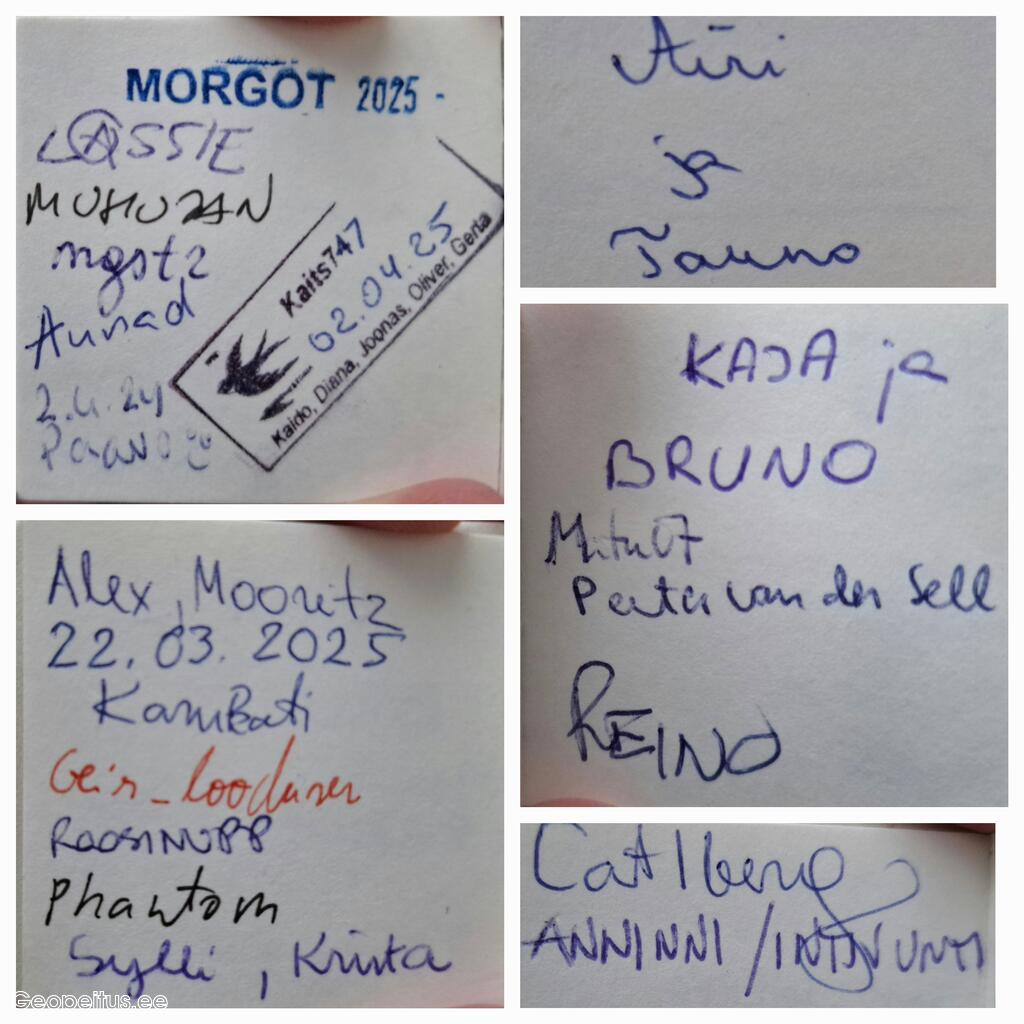 MORGOT 2025 -
LASSIE
MUHUMAN
mgstz
Annad
2.4.24
Kaits747
02.04.25
Kaido, Diana, Joonas, Oliver, Gerta
Airi
ja
Tauno
KAJA ja
BRUNO
van der Sell
REINO
Alex, Mooritz
22.03.2025
Kambati
Geir_looduses
ROOSINUPP
Phantom
Sylli, Krista
Catlberg
ANNINNI /
Geopeitus.ee